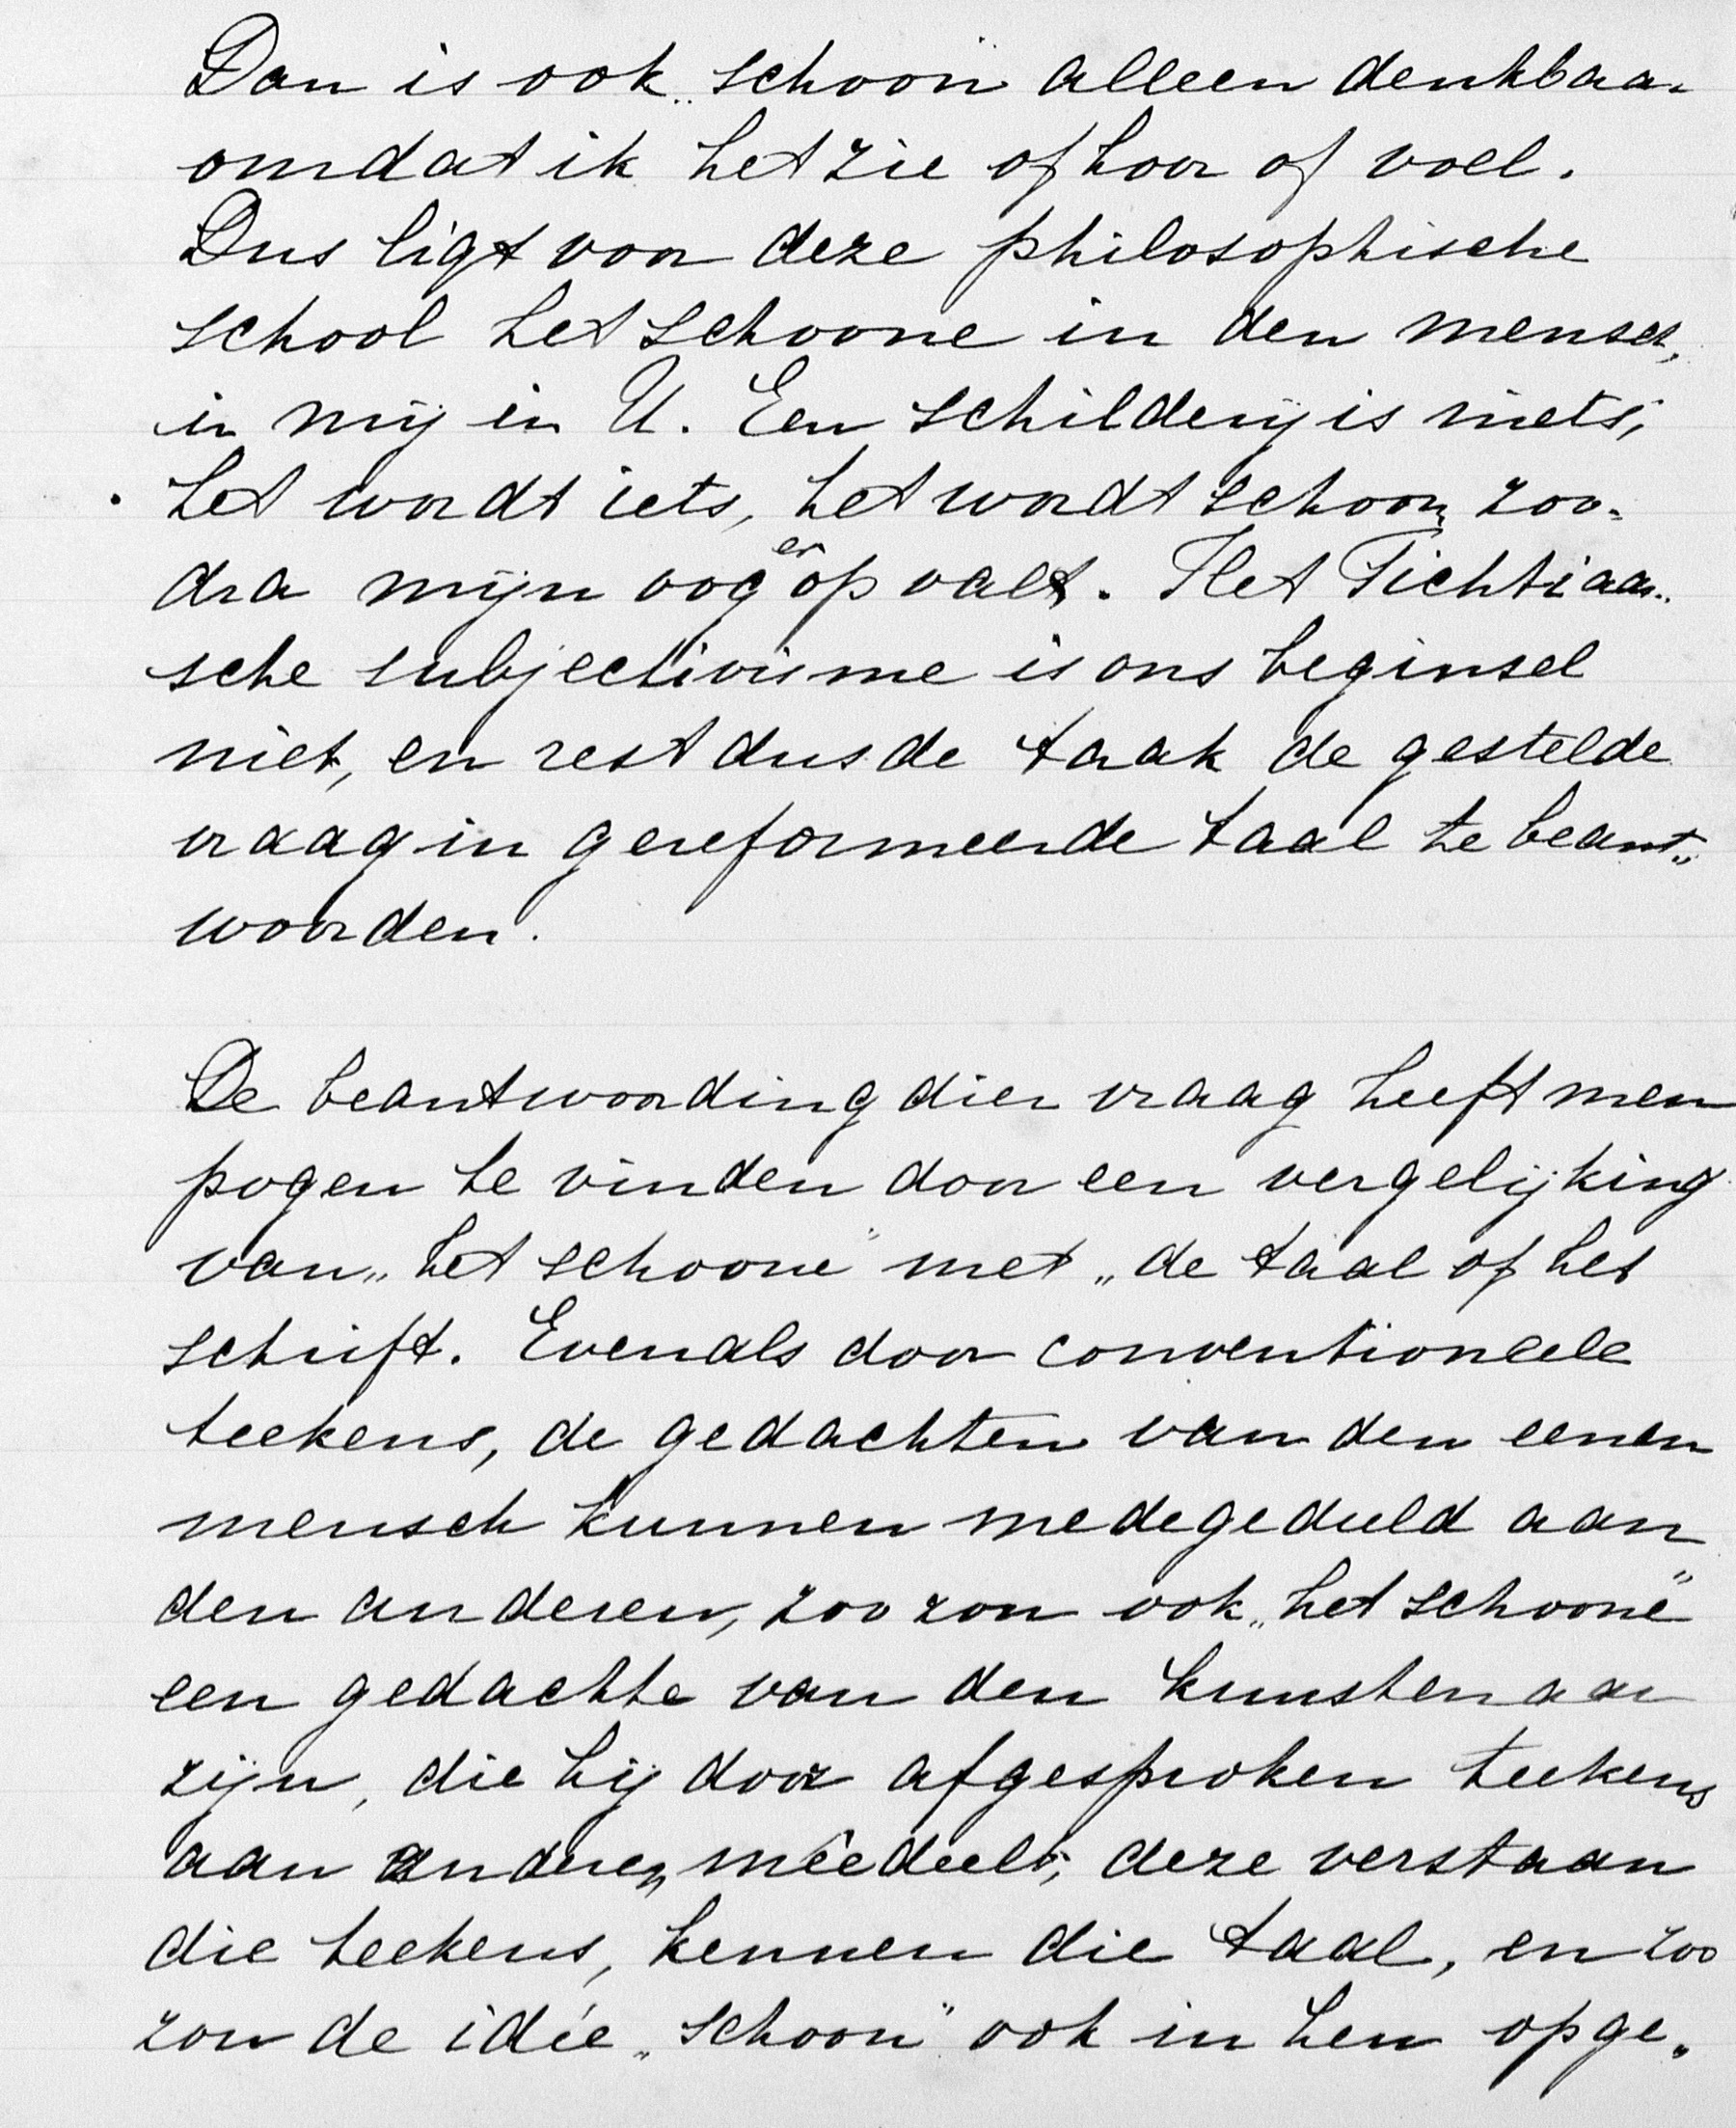 Dan is ook „schoon” alleen denkbaar
omdat ik het zie of hoor of voel.
Dus ligt voor deze philosophische
school het schoone in den mensch,
in mij in U. Een schilderij is niets;
het wordt iets, het wordt schoon, zoo-
dra mijn oog er op valt. Het Fichtiaan-
sche subjectivisme is ons beginsel
niet, en rest dus de taak de gestelde
vraag in gereformeerde taal te beant-
woorden.
De beantwoording dier vraag heeft men
pogen te vinden door een vergelijking
van „het schoone” met „de taal of het
schrift. Evenals door conventioneele
teekens, de gedachten van den eenen
mensch kunnen medegedeeld aan
den anderen, zoo zou ook „het schoone”
een gedachte van den kunstenaar
zijn, die hij door afgesproken teekens
aan anderen meedeelt; deze verstaan
die teekens, kennen die taal, en zoo
zou de idée „schoon” ook in hen opge-